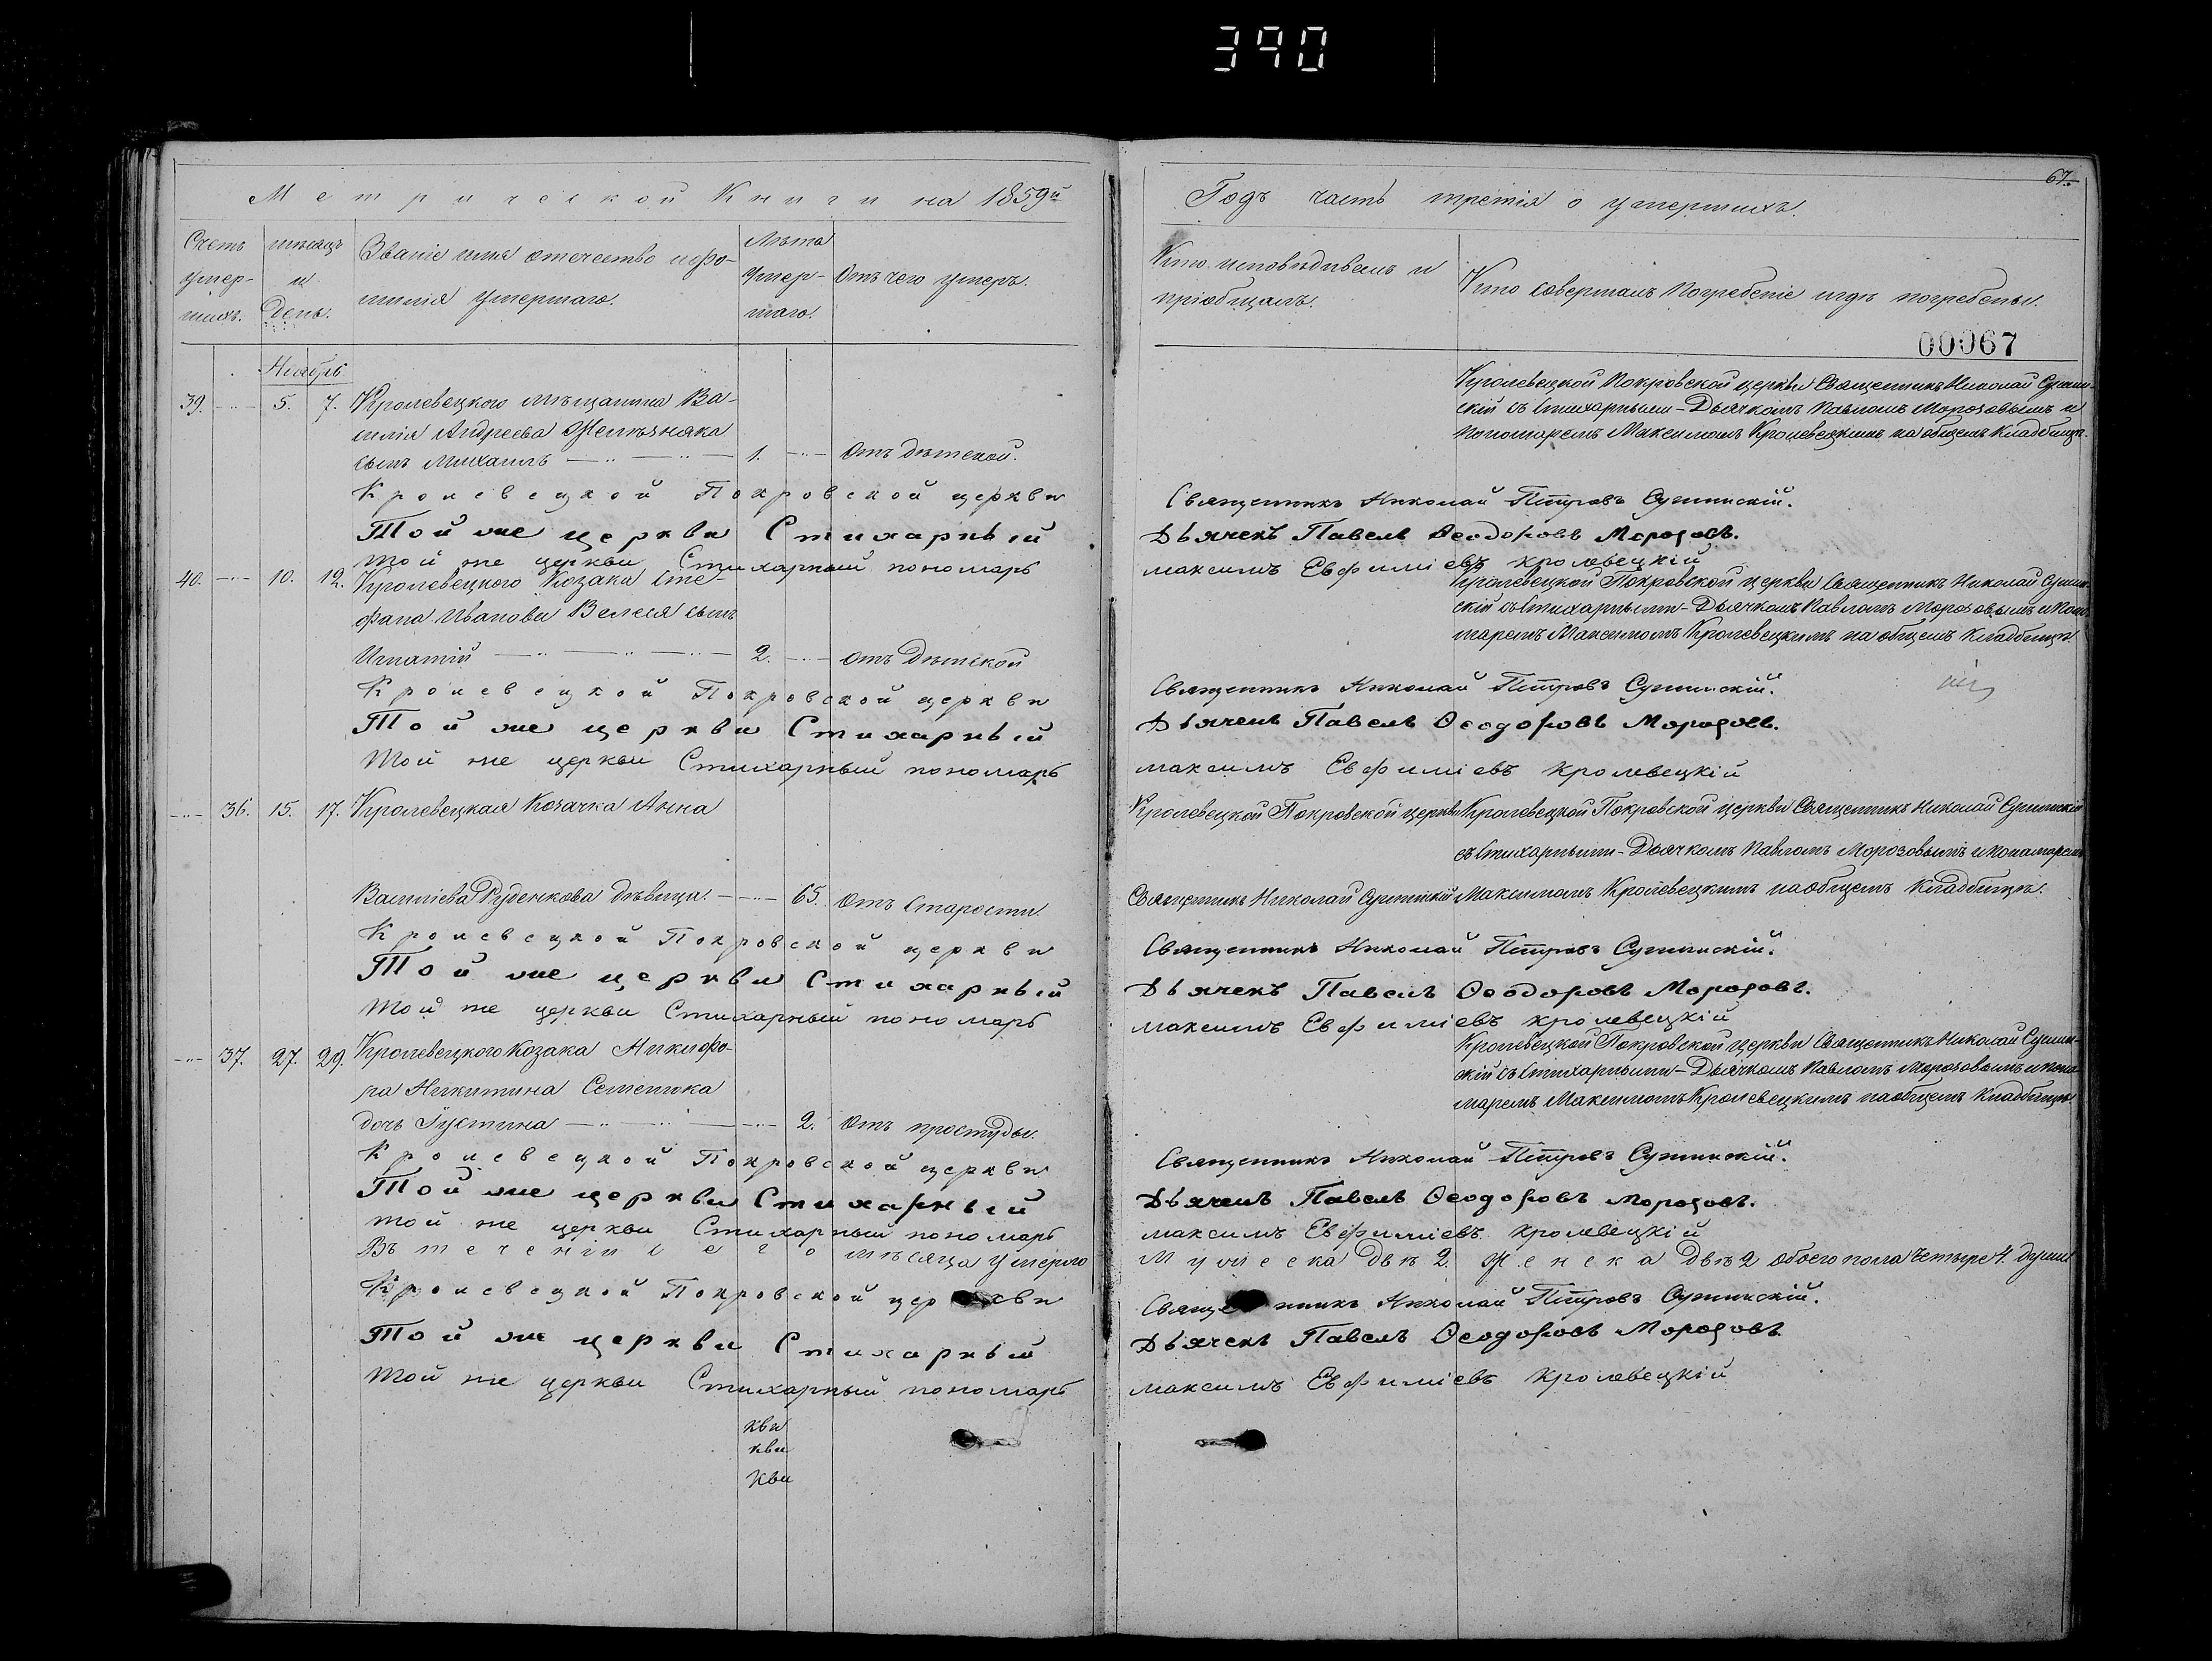 390
Метрической Книги на 1859й
Годъ часть третія о умершихъ.
67.
Счетъ умер-шихъ.
мѣсяцъ и День.
Званіе имя отчество и фо-
милія умершаго.
Лѣта умер-шаго.
Отъ чего умеръ.
Кто исповѣдывалъ и
пріобщалъ.
Кто совершалъ Погребеніе и гдѣ погребены.
00067
Ноябрь
39. 5. 7. Кролевецкого мѣщанина Ва-
силія Андреева
сынъ Михаилъ 1. Отъ дѣтской.
Кролевецкой Покровской церкви Священникъ Николай Сушин-
скій съ Стихарными-Дьячкомъ Павломъ Морозовымъ и
Пономаремъ Максимомъ Кролевецкимъ на общемъ Кладбищѣ.
Кролевецкой Покровской церкви Священникъ Николай Петровъ Сушинскій.
Той же церкви Стихарный Дьячекъ Павелъ Ѳеодоровъ Морозовъ.
той же церкви Стихарный пономарь максимъ Евфиміевъ кролевецкій
40. 10. 12. Кролевецкого Козака Сте-
фана Иванова Велея сынъ
Игнатій 2. отъ дѣтской
Кролевецкой Покровской церкви Священникъ Николай Сушин-
скій съ Стихарными-Дьячкомъ Павломъ Морозовымъ и Поно-
маремъ Максимомъ Кролевецкимъ на общемъ Кладбищѣ
Кролевецкой Покровской церкви Священникъ Николай Петровъ Сушинскій.
Той же церкви Стихарный Дьячекъ Павелъ Ѳеодоровъ Морозовъ.
той же церкви Стихарный пономарь максимъ Евфиміевъ кролевецкій
36. 15. 17. Кролевецкая Козачка Анна
Василіева Руденкова дѣвица. 65. отъ Старости.
Кролевецкой Покровской церкви
Священникъ Николай Сушинскій
Кролевецкой Покровской церкви Священникъ Николай Сушинскій
съ Стихарными-Дьячкомъ Павломъ Морозовымъ и Понамаремъ
Максимомъ Кролевецкимъ на общемъ Кладбищѣ.
Кролевецкой Покровской церкви Священникъ Николай Петровъ Сушинскій.
Той же церкви Стихарный Дьячекъ Павелъ Ѳеодоровъ Морозовъ.
той же церкви Стихарный пономарь максимъ Евфиміевъ кролевецкій
37. 27. 29. Кролевецкого Козака Никифо-
ра Никитина Семенка
дочь Іустина 2. отъ простуды.
Кролевецкой Покровской церкви Священникъ Николай Сушин-
скій съ Стихарными-Дьячкомъ Павломъ Морозовымъ и Поно-
маремъ Максимомъ Кролевецкимъ на общемъ Кладбищѣ
Кролевецкой Покровской церкви Священникъ Николай Петровъ Сушинскій.
Той же церкви Стихарный Дьячекъ Павелъ Ѳеодоровъ Морозовъ.
той же церкви Стихарный пономарь максимъ Евфиміевъ кролевецкій
Въ теченіи сего мѣсяца умерло Мужеска двѣ 2. Женска двѣ 2 обоего пола Четыре 4. души
Кролевецкой Покровской церкви Священникъ Николай Петровъ Сушинскій.
Той же церкви Стихарный Дьячекъ Павелъ Ѳеодоровъ Морозовъ.
той же церкви Стихарный пономарь максимъ Евфиміевъ кролевецкій
кви
кви
кви